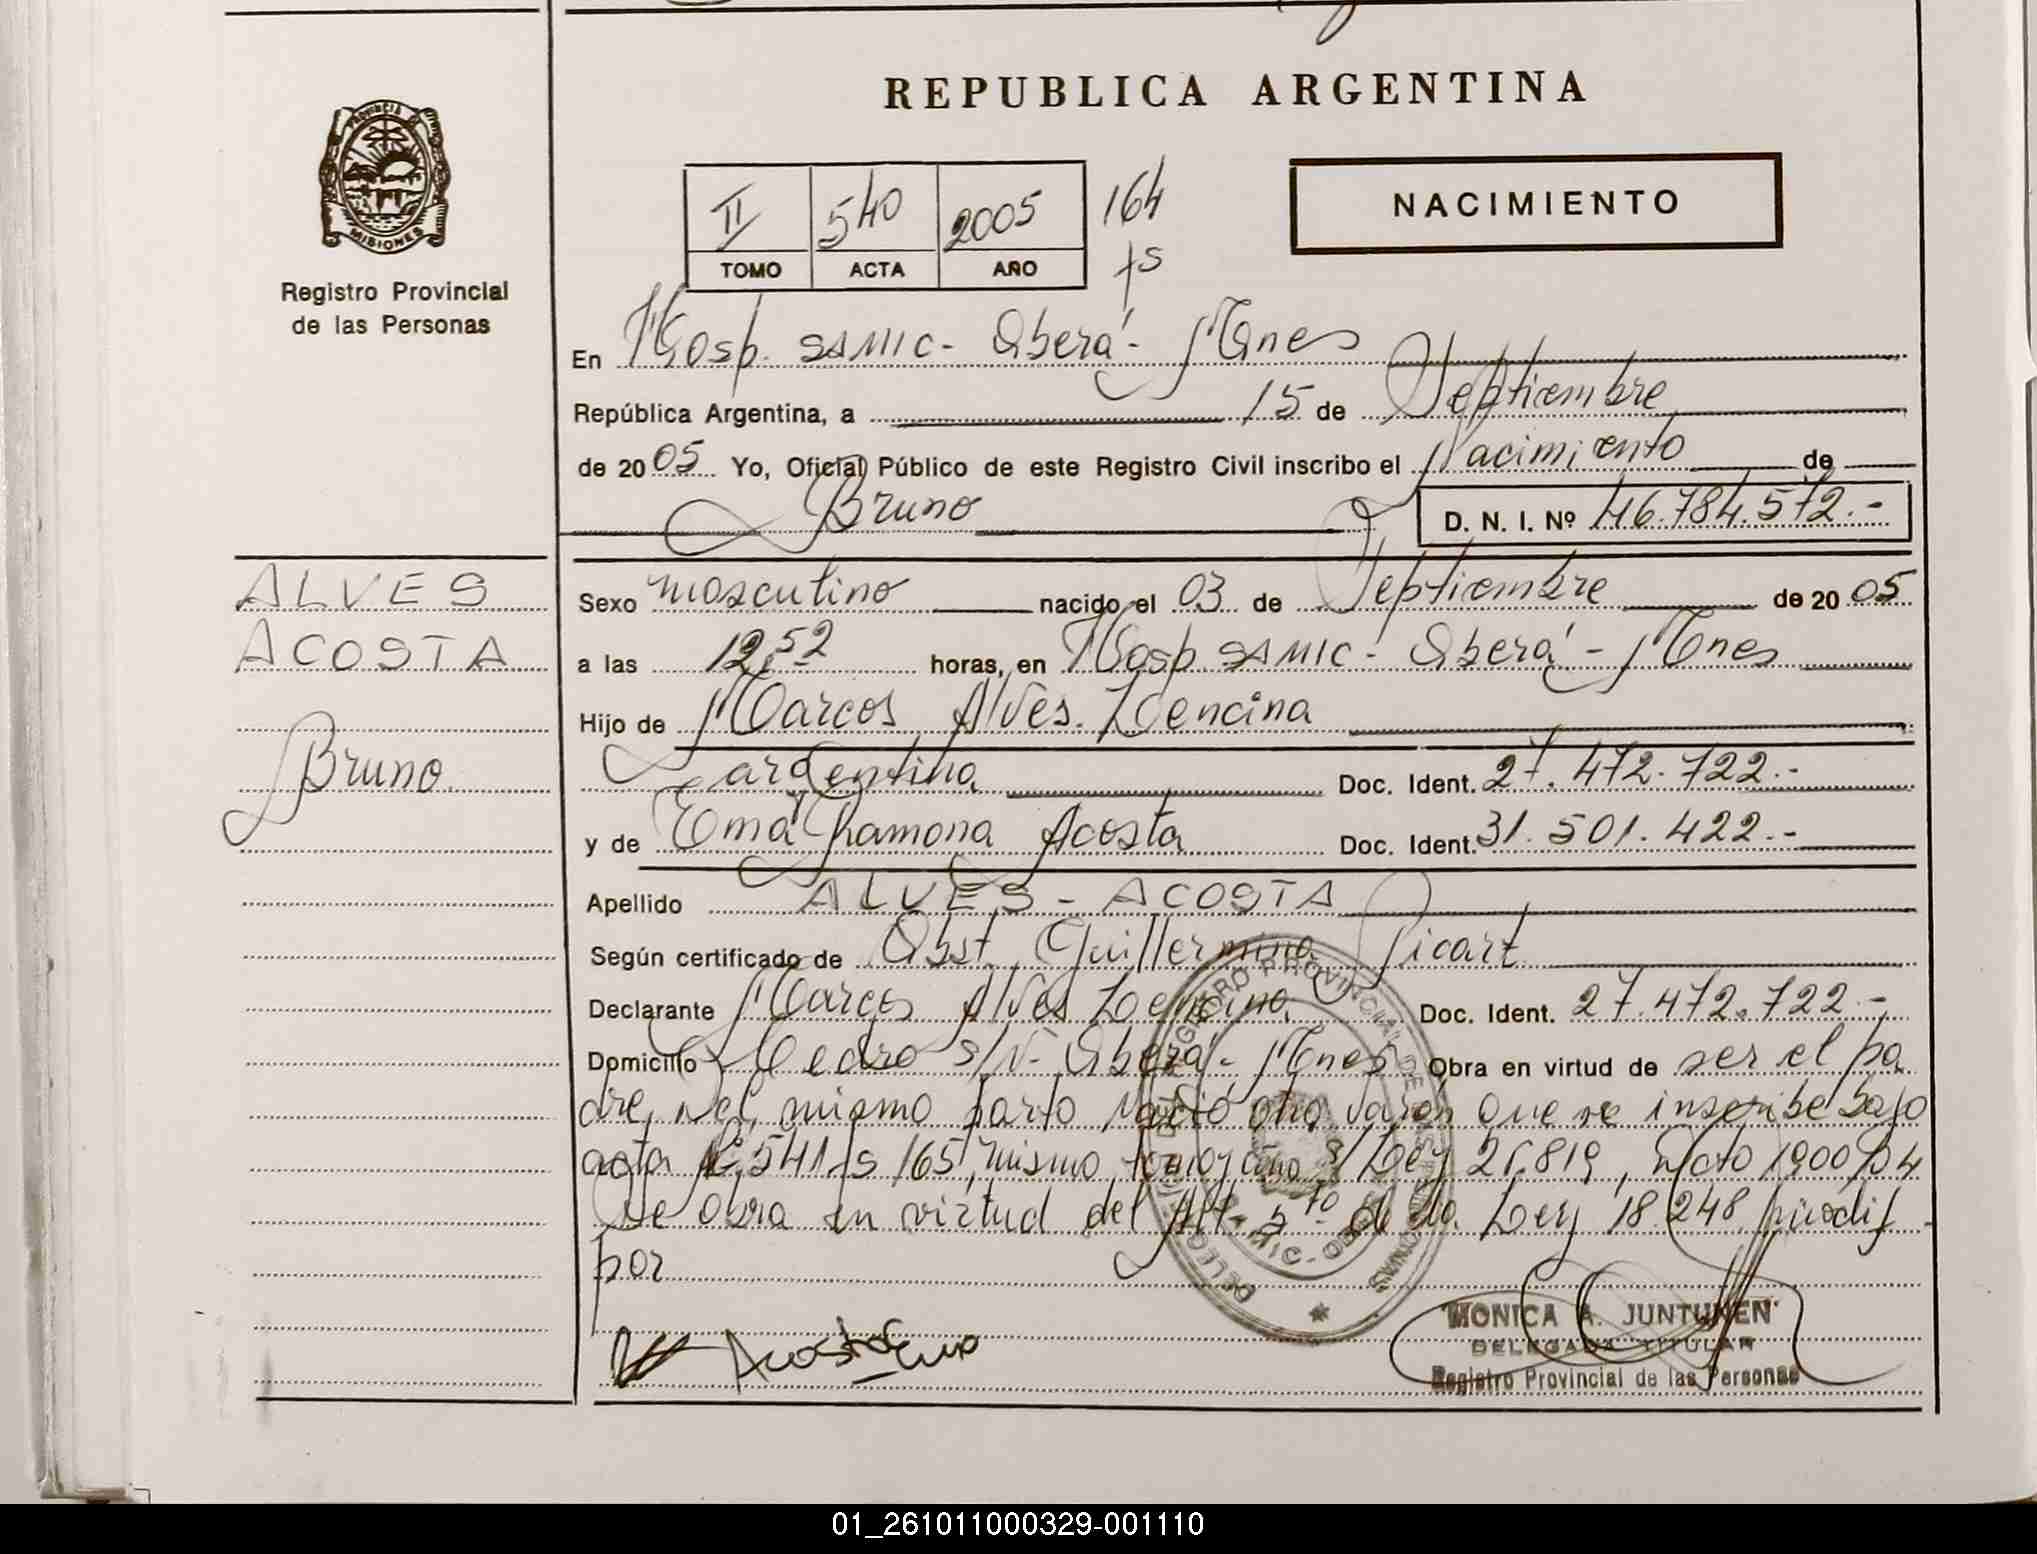 REPUBLICA ARGENTINA
PROVINCIA DE MISIONES
Registro Provincial
de las Personas
II 540 2005 164
TOMO ACTA AÑO fs
NACIMIENTO
En Hosp. SAMIC - Oberá - Mnes
República Argentina, a 15 de Septiembre
de 2005 Yo, Oficial Público de este Registro Civil inscribo el Nacimiento de
Bruno D. N. I. Nº 46.784.572.-
ALVES
ACOSTA
Bruno
Sexo masculino nacido el 03 de Septiembre de 2005
a las 12,52 horas, en Hosp. SAMIC - Oberá - Mnes
Hijo de Marcos Alves Lencina
argentina Doc. Ident. 27.472.722.-
y de Ema Ramona Acosta Doc. Ident. 31.501.422.-
Apellido ALVES - ACOSTA
Según certificado de Obst. Guillermina Picart
Declarante Marcos Alves Lencina Doc. Ident. 27.472.722.-
Domicilio Cedro s/N - Oberá - Mnes Obra en virtud de ser el pa
dre, Del mismo parto Nació otro varón que se inscribe bajo
acta 541 fs 165, mismo tomo y año s/ Ley 25.819, Dcto 1900/04
Se obra en virtud del Art. 5to de la Ley 18.248 modif.
por
Acosta Ema
MONICA A. JUNTUNEN
DELEGADA TITULAR
Registro Provincial de las Personas
01_261011000329-001110